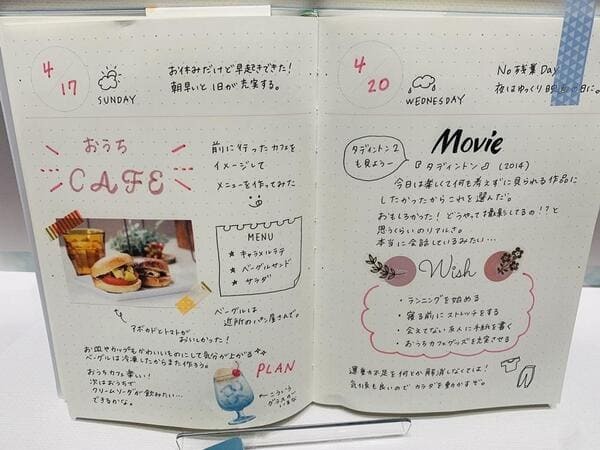 4
17
SUNDAY
お休みだけど早起きできた!
朝早いと1日が充実する。
おうち
CAFE
前に行ったカフェを
イメージして
メニューを作ってみた
MENU
★ キャラメルラテ
★ ベーグルサンド
★ サラダ
ベーグルは
近所のパン屋さんで。
アボカドとトマトが
おいしかった!
お皿やカップもかわいいものにして気分が上がる
ベーグルは冷凍したからまた作ろう。
おうちカフェ楽しい!
次はおうちで
クリームソーダが飲みたい…
できるかな。
PLAN
こういう
グラスが
4
20
WEDNESDAY
No 残業 Day
夜はゆっくり
日に。
Movie
タディントン2
も見よう
『タディントン』(2014)
今日は楽しくて何も考えずに見られる作品に
したかったからこれを選んだ。
おもしろかった! どうやって撮影してるの!?と
思うくらいのリアルさ。
本当に会話しているみたい…
Wish
・ランニングを始める
・寝る前にストレッチをする
・会えてない友人に手紙を書く
・おうちカフェグッズを充実させる
運動不足を何とか解消しなくては!
気候も良いので カラダを動かすぞ。